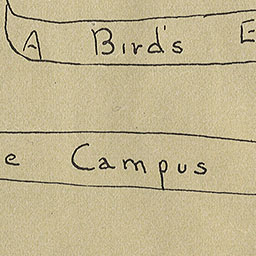 A Bird's E
e Campus